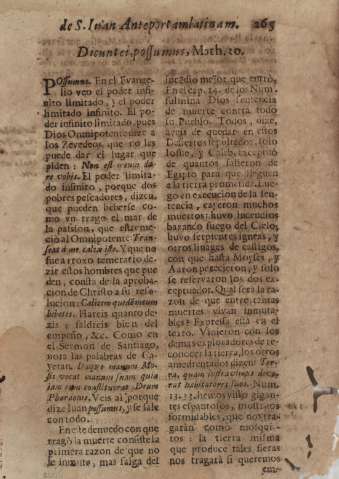 de S. Iuan Anteportamlatinam. 265
Dicunt ei, possumus, Math. 20.
POssumus. En el Evange-
lio veo el poder infi-
nito limitado, y el poder
limitado infinito. El po-
der infinito limitado, pues
Dios Omnipotente
Zevedeos, que no les
puede dar el lugar que
piden: Non est meum da-
re vobis. El poder limita-
do infinito, porque dos
pobres pescadores, dizen,
que pueden beberse como
un trago el mar de
la passion, que estre-
meciò al Omnipotente: Trans-
feat à me calix iste. Y que no
fuesse arrojo temerario de-
zir estos hombres que pue-
den, consta de la aproba-
cion de Christo a su reso-
lucion: Calicem quidem meum
bibetis. Hareis quanto de-
zis; y saldreis bien del
empeño, &c. Como en
el Sermon de Santiago,
nota las palabras de Ca-
yetan.
Veis al, porque
dize Iuan possumus, y se sale
con todo.
En este denuedo con que
tragò la muerte consiste la
primera razon de que no
le inmute, mas salga del
sucedio mejor, que entrò.
En el cap. 14. de los Num.
fulmina Dios sentencia
de muerte contra todo
su Pueblo. Todos, dize,
aveis de quedar en estos
Desiertos sepultados, solo
Iosue, y Caleb, exceptò
de quantos salieron de
Egipto para que lleguen
a la tierra prometida. Lue-
go en execucion de la sen-
tencia, cayeron muchos
muertos: huvo incendios
baxando fuego del Cielo,
huvo serpientes igneas, y
otros linages de castigos,
con que hasta Moyses, y
Aaron perecieron, y solo
se reservaron los dos ex-
ceptuados. Qual serà la
razon de que entre tantas
muertes vivan inmuta-
bles? Expressa està en el
texto. Vinieron con los
demas exploradores de re-
conocer la tierra, los otros
amedrentados dizen: Ter-
ra, quam lustravimus devo-
rat habitatores suos. Num.
13. 33. hemos visto gigan-
tes espantosos, monstruos
formidables, que nos tra-
garàn como mosqui-
tos: la tierra misma
que produce tales fieras
nos tragarà si queremos